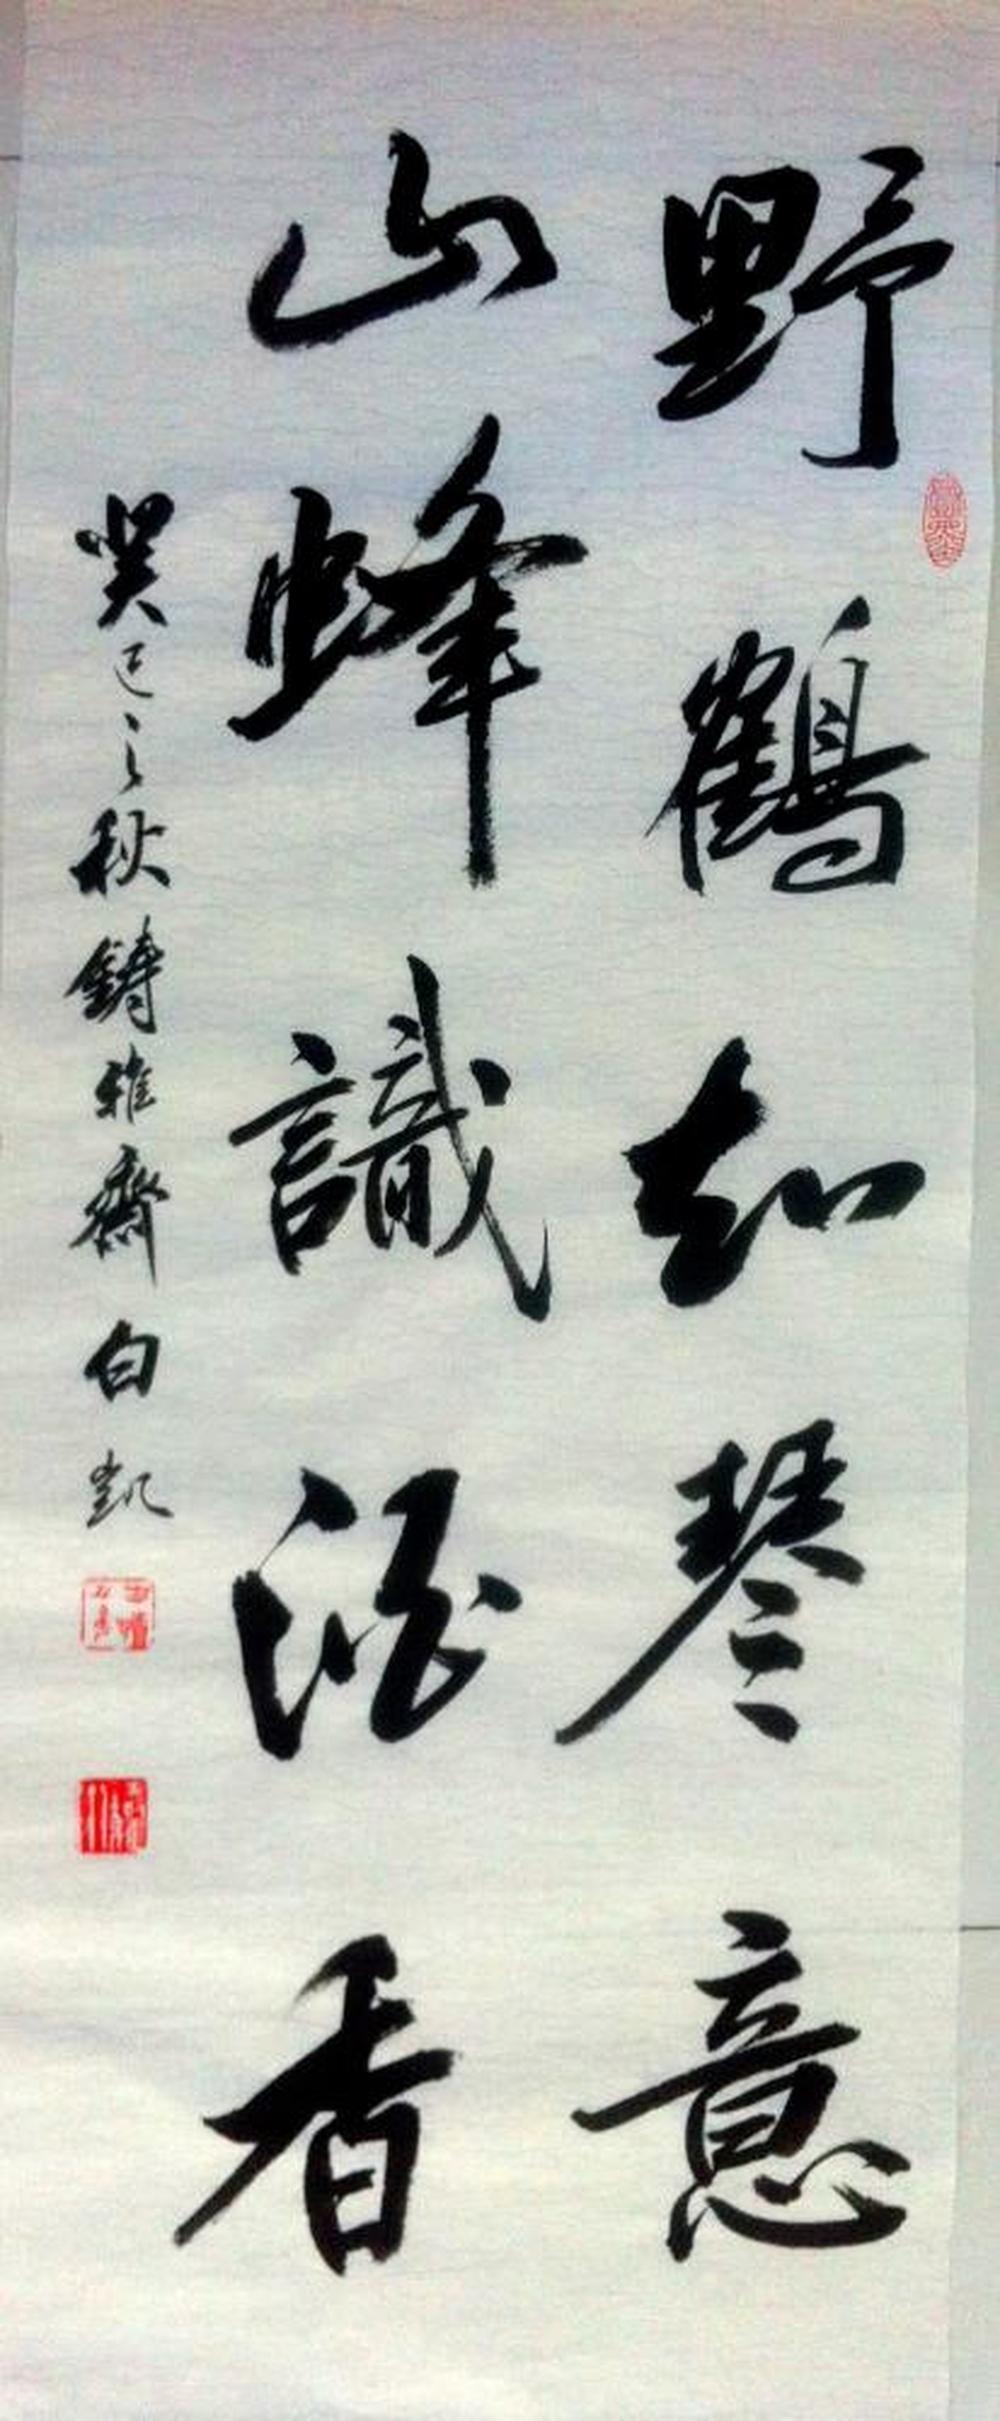 野鶴知琴意
山蜂識酒香
癸巳之秋鑄雅齋白凱